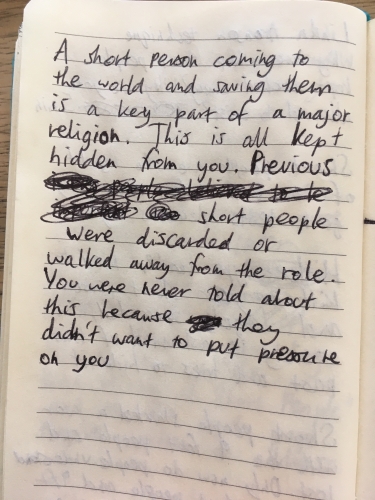 A short person coming to
the world and saving them
is a key part of a major
religion. This is all kept
hidden from you. Previous
short people
were discarded or
walked away from the role.
You were never told about
this because they
didn't want to put pressure
on you